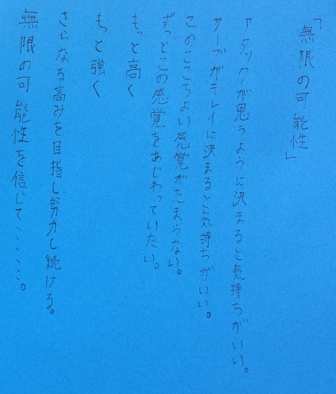 「無限の可能性」
アタックが思うように決まると気持ちがいい。
サーブがキレイに決まると気持ちがいい。
このここちよい感覚がたまらない。
ずっとこの感覚をあじわっていたい。
もっと高く
もっと強く
さらなる高みを目指し努力し続ける。
無限の可能性を信じて・・・・・・。